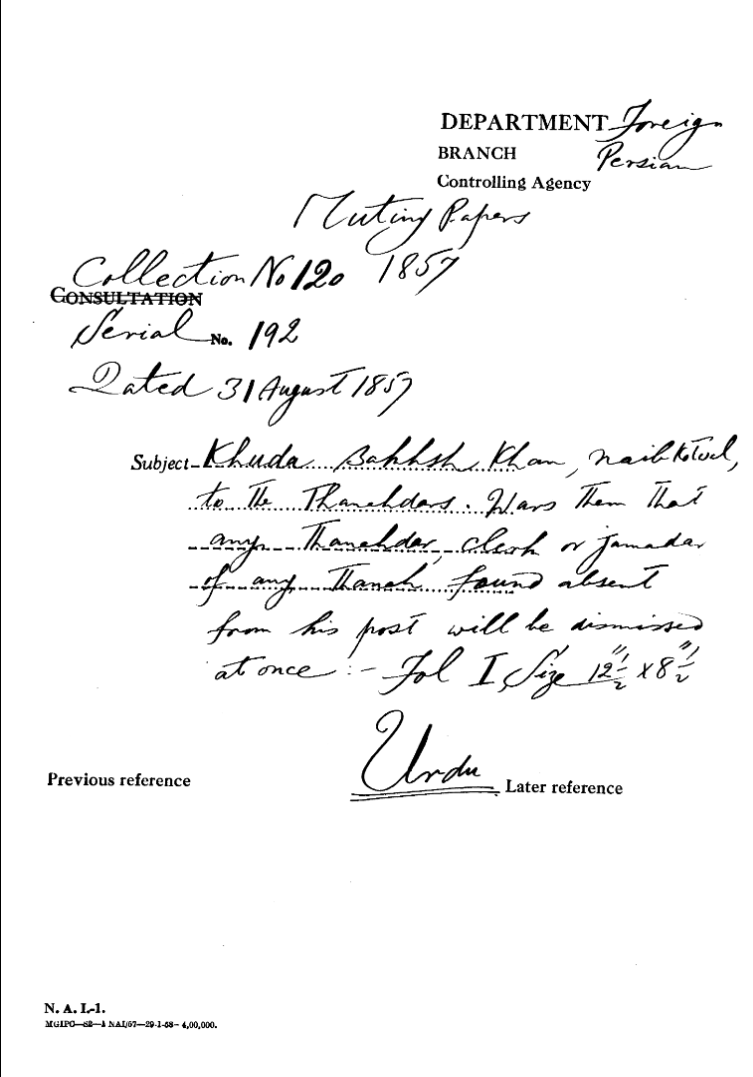 DEPARTMENT Foreign
BRANCH Persian
Controlling Agency
Mutiny Papers
Collection No 120 1857
CONSULTATION
Serial No. 192
Dated 31 August 1857
Subject - Khuda Bakhsh Khan, naib Kotwal,
to the Thanehdars. Warns them that
any Thanehdar, clerk or jamadar
of any Thanah found absent
from his post will be dismissed
at once :- Fol 1, Size 12½" x 8½"
Urdu
Previous reference
Later reference
N. A. I.-1.
MGIPC—S2—1 NAI/57—29-1-58— 4,00,000.